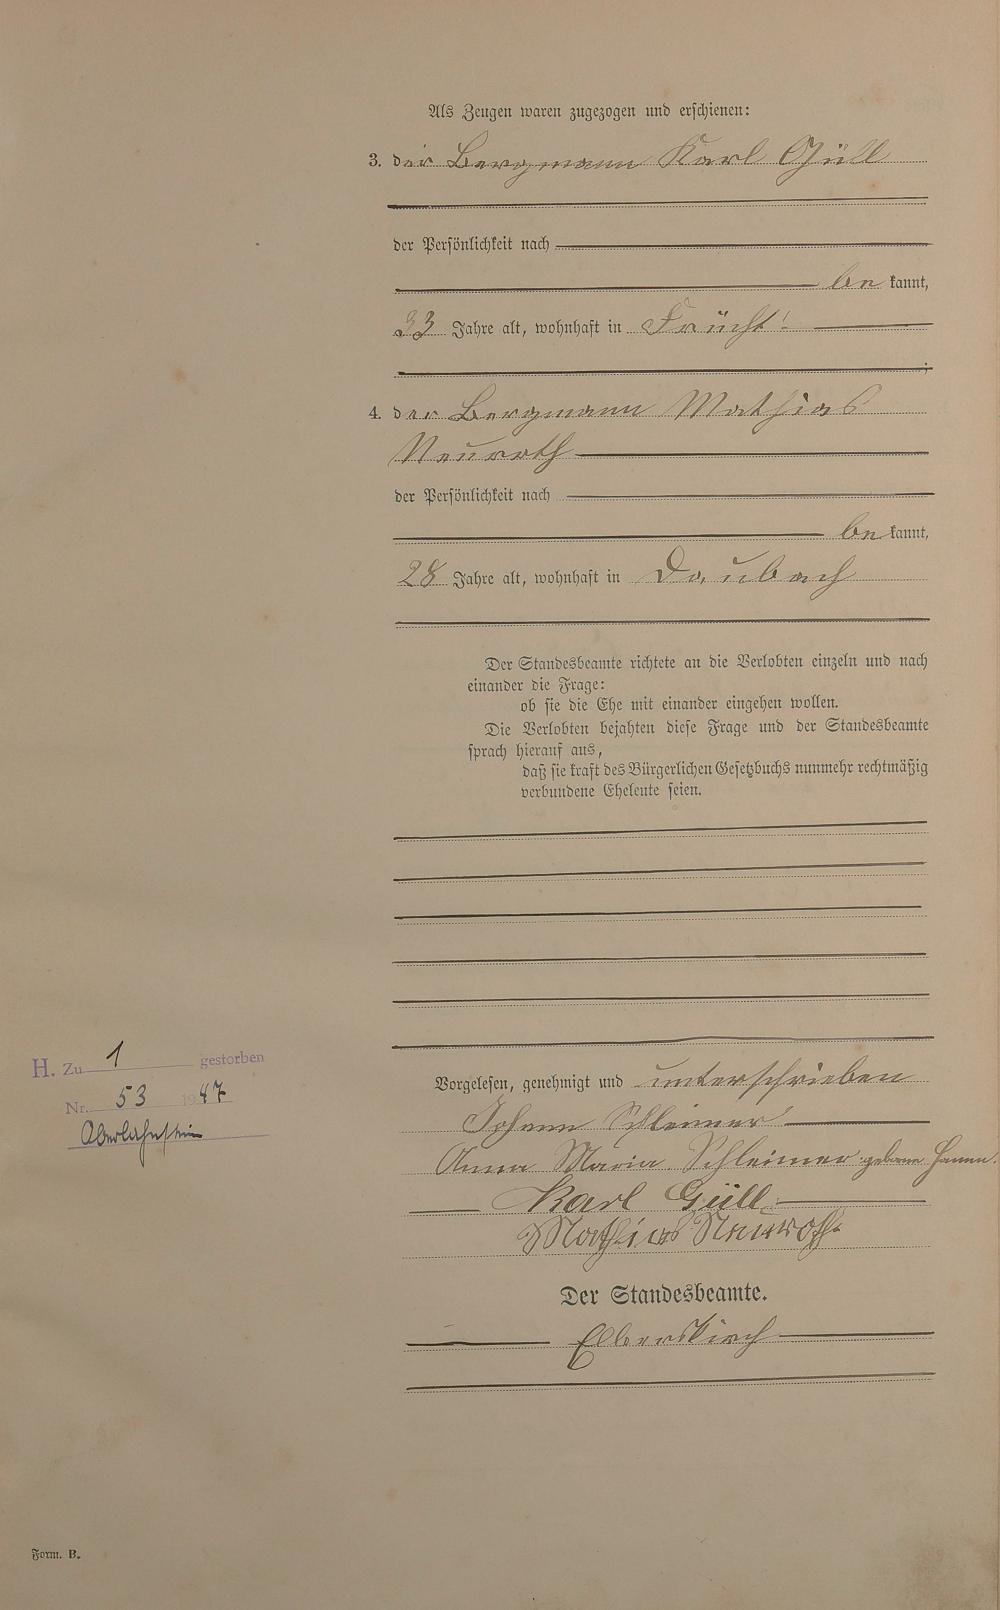 Als Zeugen waren zugezogen und erschienen:
3. der Bergmann Karl Güll
der Persönlichkeit nach
be kannt,
33 Jahre alt, wohnhaft in Frücht
;
4. der Bergmann Mathias
Neuroth
der Persönlichkeit nach
be kannt,
28 Jahre alt, wohnhaft in Daubach
Der Standesbeamte richtete an die Verlobten einzeln und nach
einander die Frage:
ob sie die Ehe mit einander eingehen wollen.
Die Verlobten bejahten diese Frage und der Standesbeamte
sprach hierauf aus,
daß sie kraft des Bürgerlichen Gesetzbuchs nunmehr rechtmäßig
verbundene Eheleute seien.
H. Zu 1 gestorben
Nr. 53 1947
Oberlahnstein
Vorgelesen, genehmigt und unterschrieben
Johann Schleimer
Anna Maria Schleimer geborene
Karl Güll
Mathias Neuroth
Der Standesbeamte.
Elberskirch
Form. B.